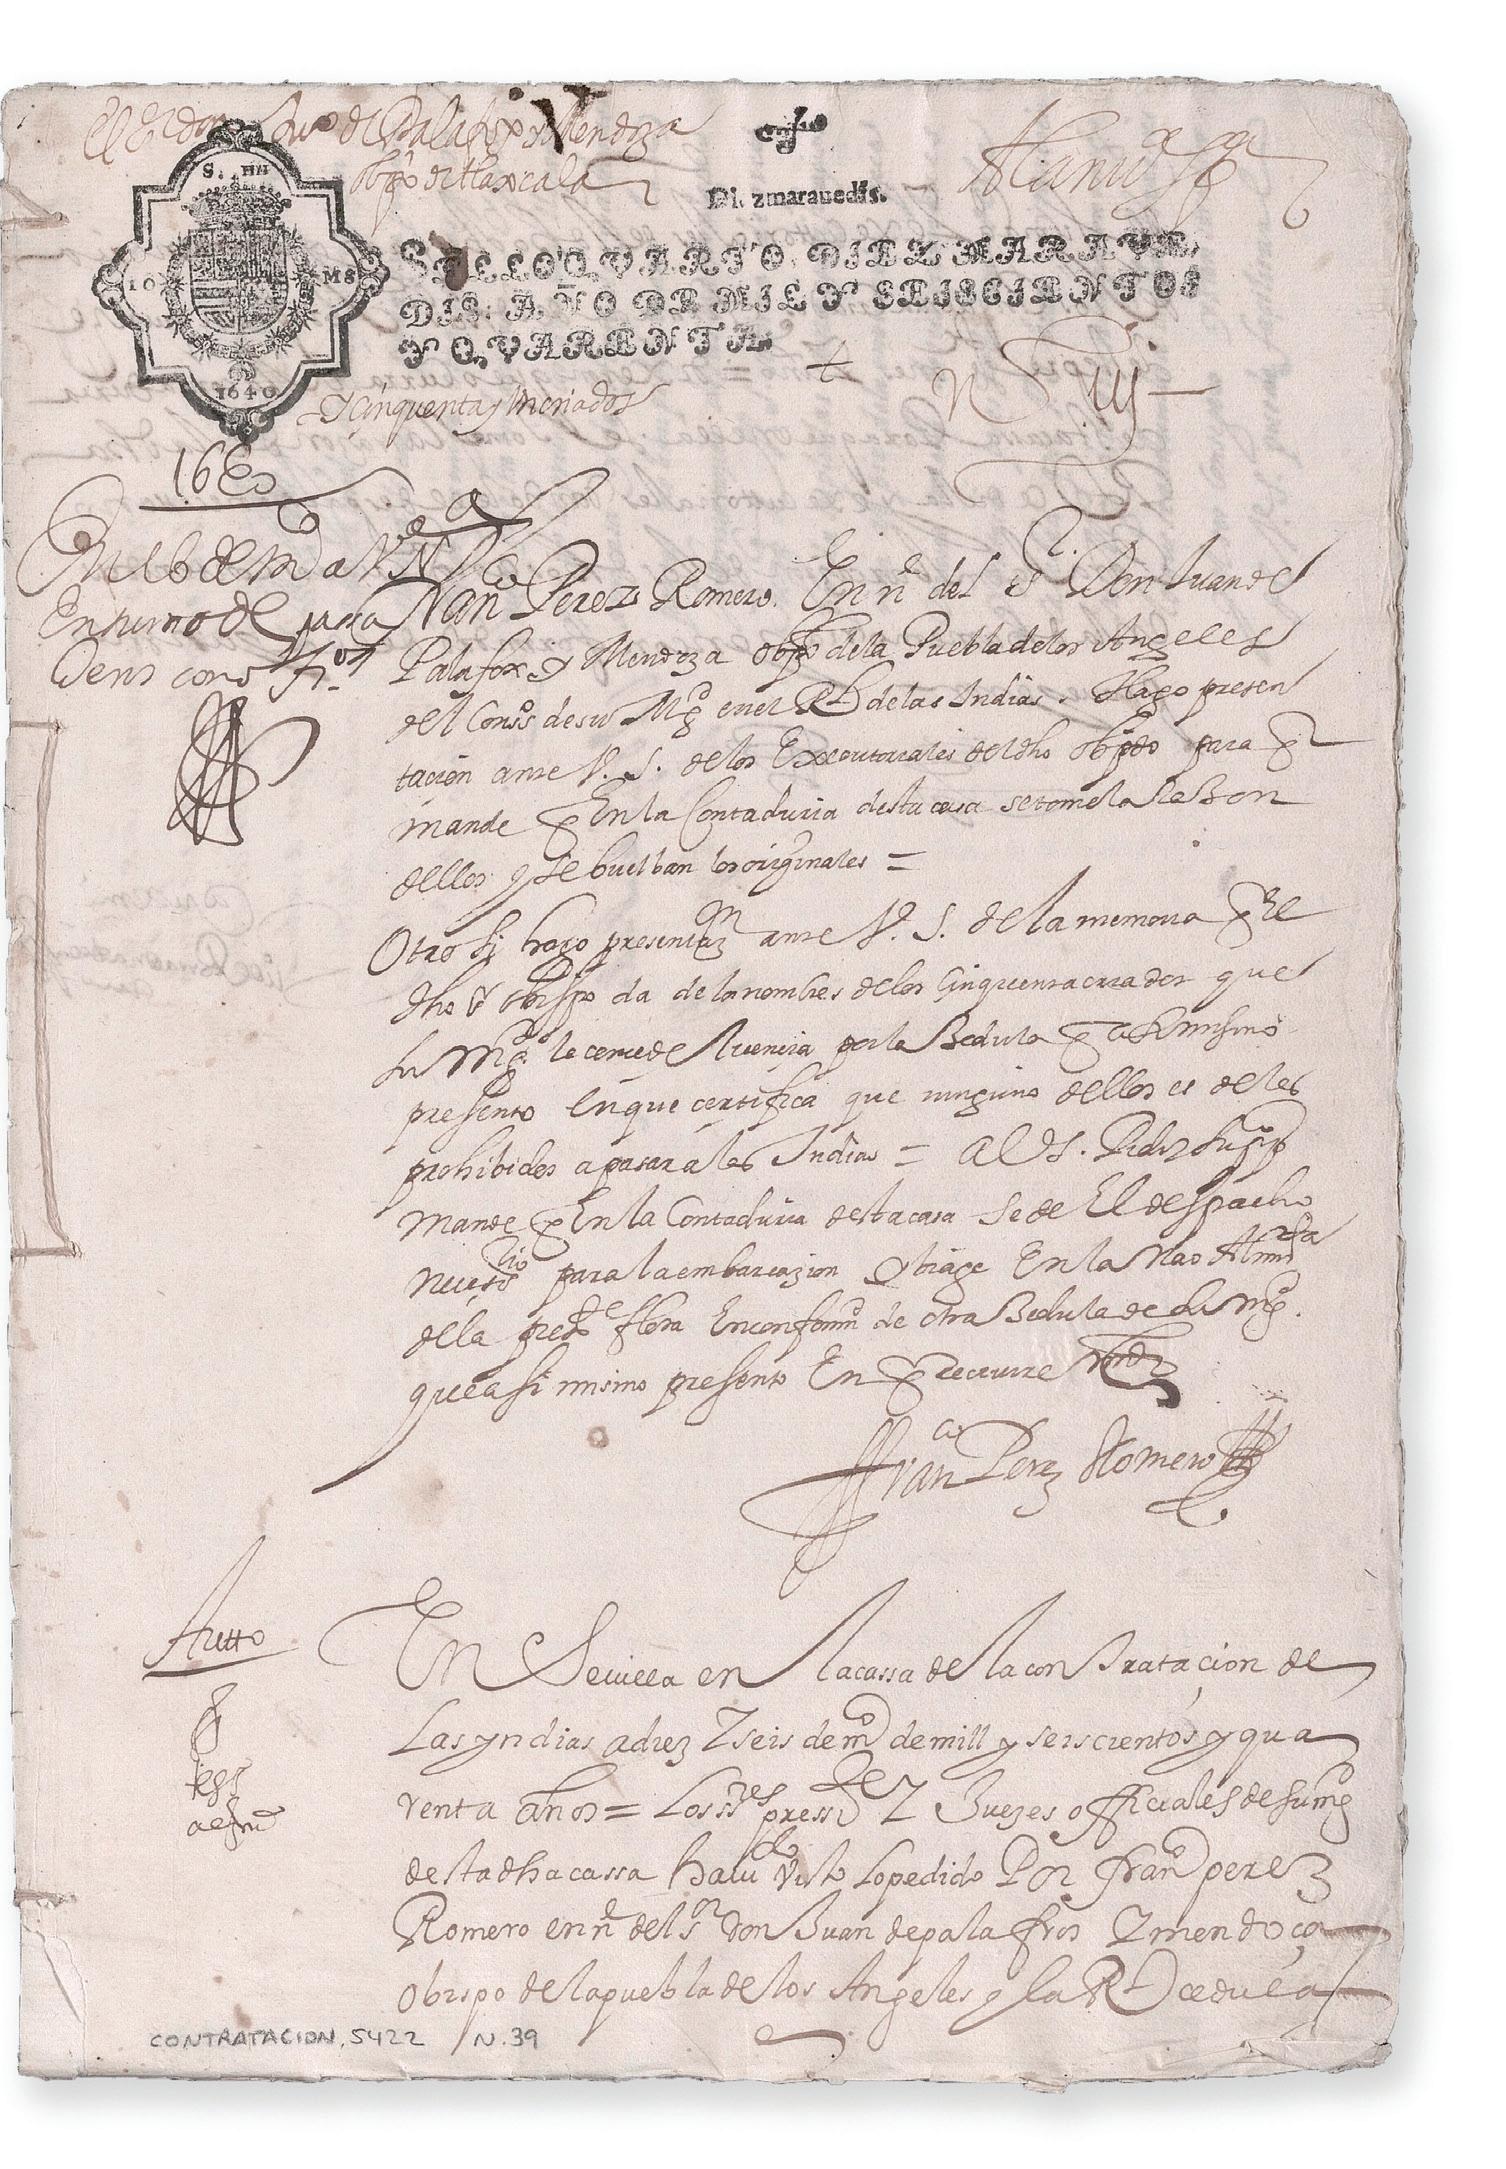 El Sr don Juo de Palafox y Mendoza
obpo de tlaxcala
Diez marauedis.
SELLO QVARTO, DIEZ MARAVE-
DIS, AÑO DE MIL Y SEISCIENTOS
Y QVARENTA.
S. IIII
1640
y cinquenta y un criados
1640
Franco Perez Romero. En ne del Sr. Don Juan de
Palafox y Mendoza obpo de la Puebla de los Angeles
del Conso de su Mgd en el Rl de las Indias. Hago presen
tacion ante V. S. de los Executoriales del dho obpdo para q
mande q En la Contaduria desta casa se tome la Rason
dellos y se buelban los originales =
Otro si hago presentaon ante V. S. de la memoria q el
dho Sr obispo da de los nombres de los Cinquenta criados que
su Mgd le concede licencia por la Zedula q asimismo
presento en que certifica que ninguno dellos es de los
prohibidos a pasar a las Indias = A V. S. Pido y supco
mande q En la Contaduria desta casa se de El despacho
necessrio para la embarcazion y biage En la nao Almirta
della preste flota En conformd de otra Zedula de su Mgd.
que asi mismo presento En q recivire md
Franco Perez Romero
Autto
En Sevilla en la cassa de la contratacion de
Las yndias a diez y seis de mo de mill y seiscientos y qua
renta años = Los sres pressidte y Juezes officiales de su mgd
desta dha cassa havido visto lo pedido Por franco perez
Romero en ne del sor don Juan de pala fros y mendoça
obispo de la puebla de los Angeles y la Rl cedula
CONTRATACION, 5422 N. 39